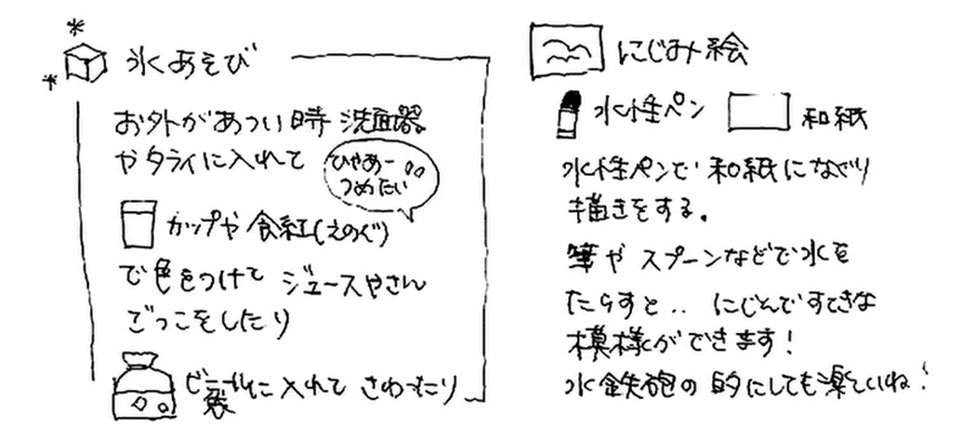 氷あそび
お外があつい時 洗面器
やタライに入れて
ひゃあー
つめたい
カップや食紅(えのぐ)
で色をつけて ジュースやさん
ごっこをしたり
ビニール袋に入れて さわったり
にじみ絵
水性ペン 和紙
水性ペンで 和紙になぐり
描きをする。
筆や スプーンなどで水を
たらすと.. にじんですてきな
模様ができます!
水鉄砲の的にしても楽しいね!